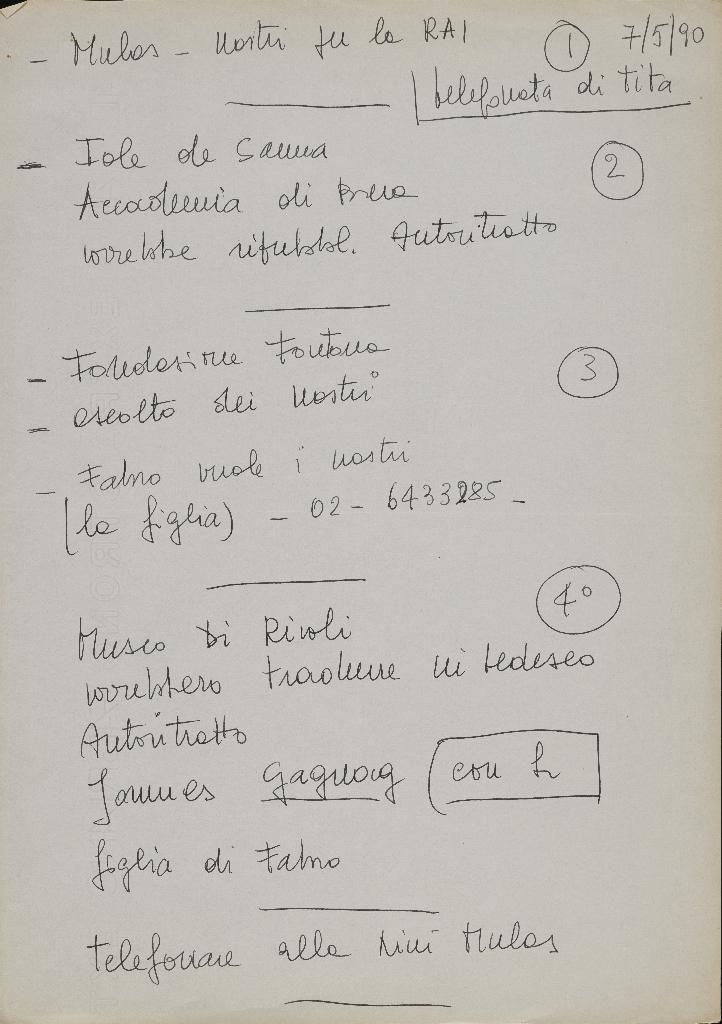 - Mulas - nastri per la RAI ① 7/5/90
telefonata di Tita
- Iole de Sanna ②
Accademia di Brera
vorrebbe ripubbl. Autoritratto
- Fondazione Fontana ③
- ascolto dei nastri
- Fabro vuole i nastri
(la figlia) - 02 - 6433285 -
4°
Museo Di Rivoli
vorrebbero tradurre in tedesco
Autoritratto
Jannes con h
figlia di Fabro
telefonare alla Nini Mulas